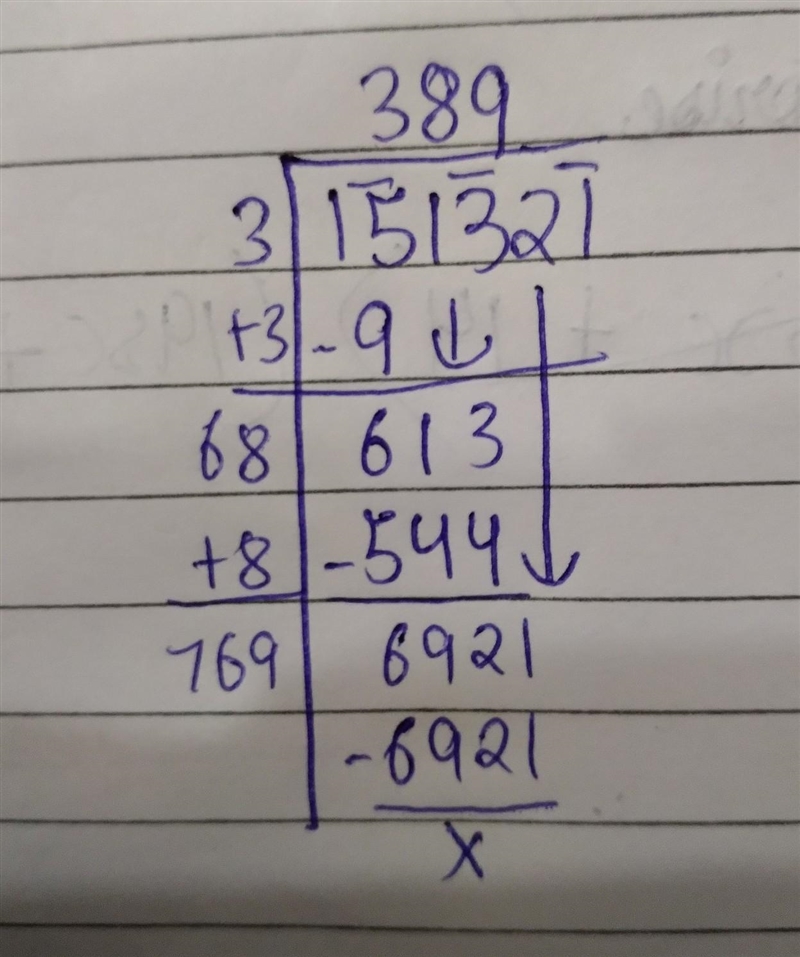 389
3 151321
+3 -9 ↓
68 613
+8 -544 ↓
769 6921
-6921
x